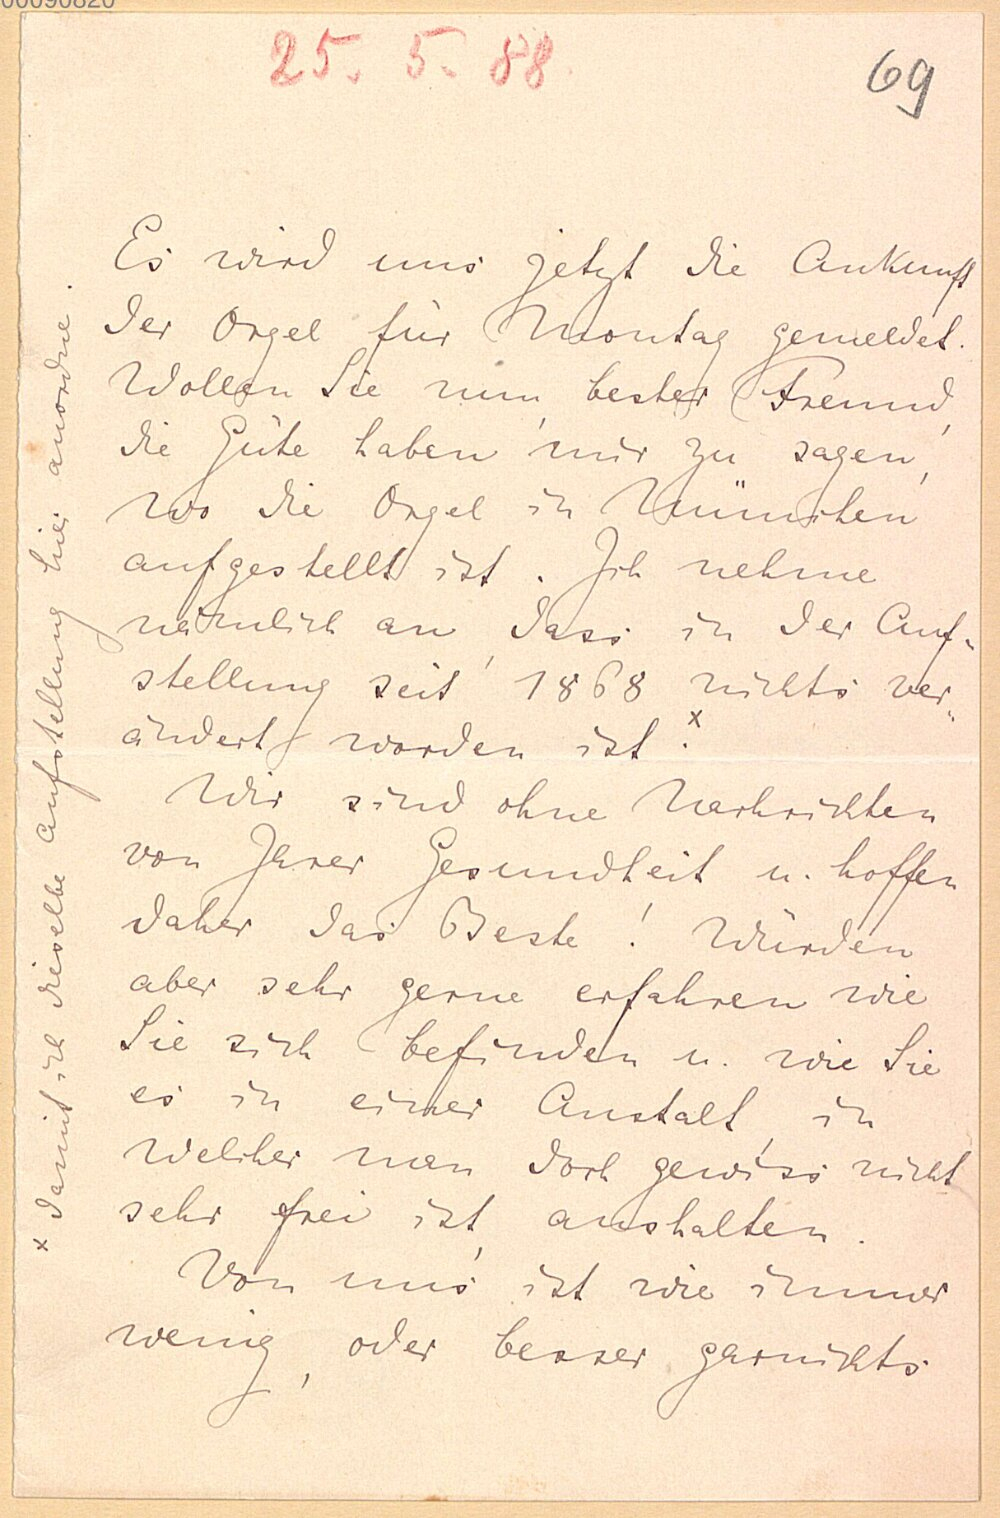 00090820
25. 5. 88.
69
Es wird uns jetzt die Ankunft
der Orgel für Montag gemeldet.
Wollen Sie nun, bester Freund,
die Güte haben mir zu sagen,
wo die Orgel in München
aufgestellt ist. Ich nehme
nämlich an, dass in der Auf-
stellung seit 1868 nichts ver-
ändert worden ist.x
Wir sind ohne Nachrichten
von Ihrer Gesundheit u. hoffen
daher das Beste! Würden
aber sehr gerne erfahren wie
Sie sich befinden u. wie Sie
es in einer Anstalt, in
welcher man doch gewiss nicht
sehr frei ist, aushalten.
Von uns ist wie immer
wenig, oder besser garnichts
x damit ich dieselbe Aufstellung hier anordne.